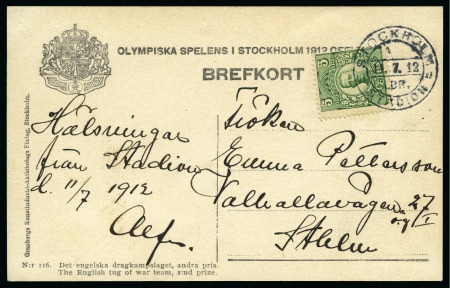 OLYMPISKA SPELENS I STOCKHOLM 1912 OFFI
BREFKORT
STOCKHOLM
7. 12
LBR.
STADION
5 5
Hälsningar
från Stadion
d. 11/7 1912
Alf.
Fröken
Emma Pettersson
Valhallavägen 27
I
Sthlm
Granbergs Konstindustri-Aktiebolags Förlag, Stockholm.
N:r 116. Det engelska dragkampslaget, andra pris.
The English tug of war team, 2:nd prize.